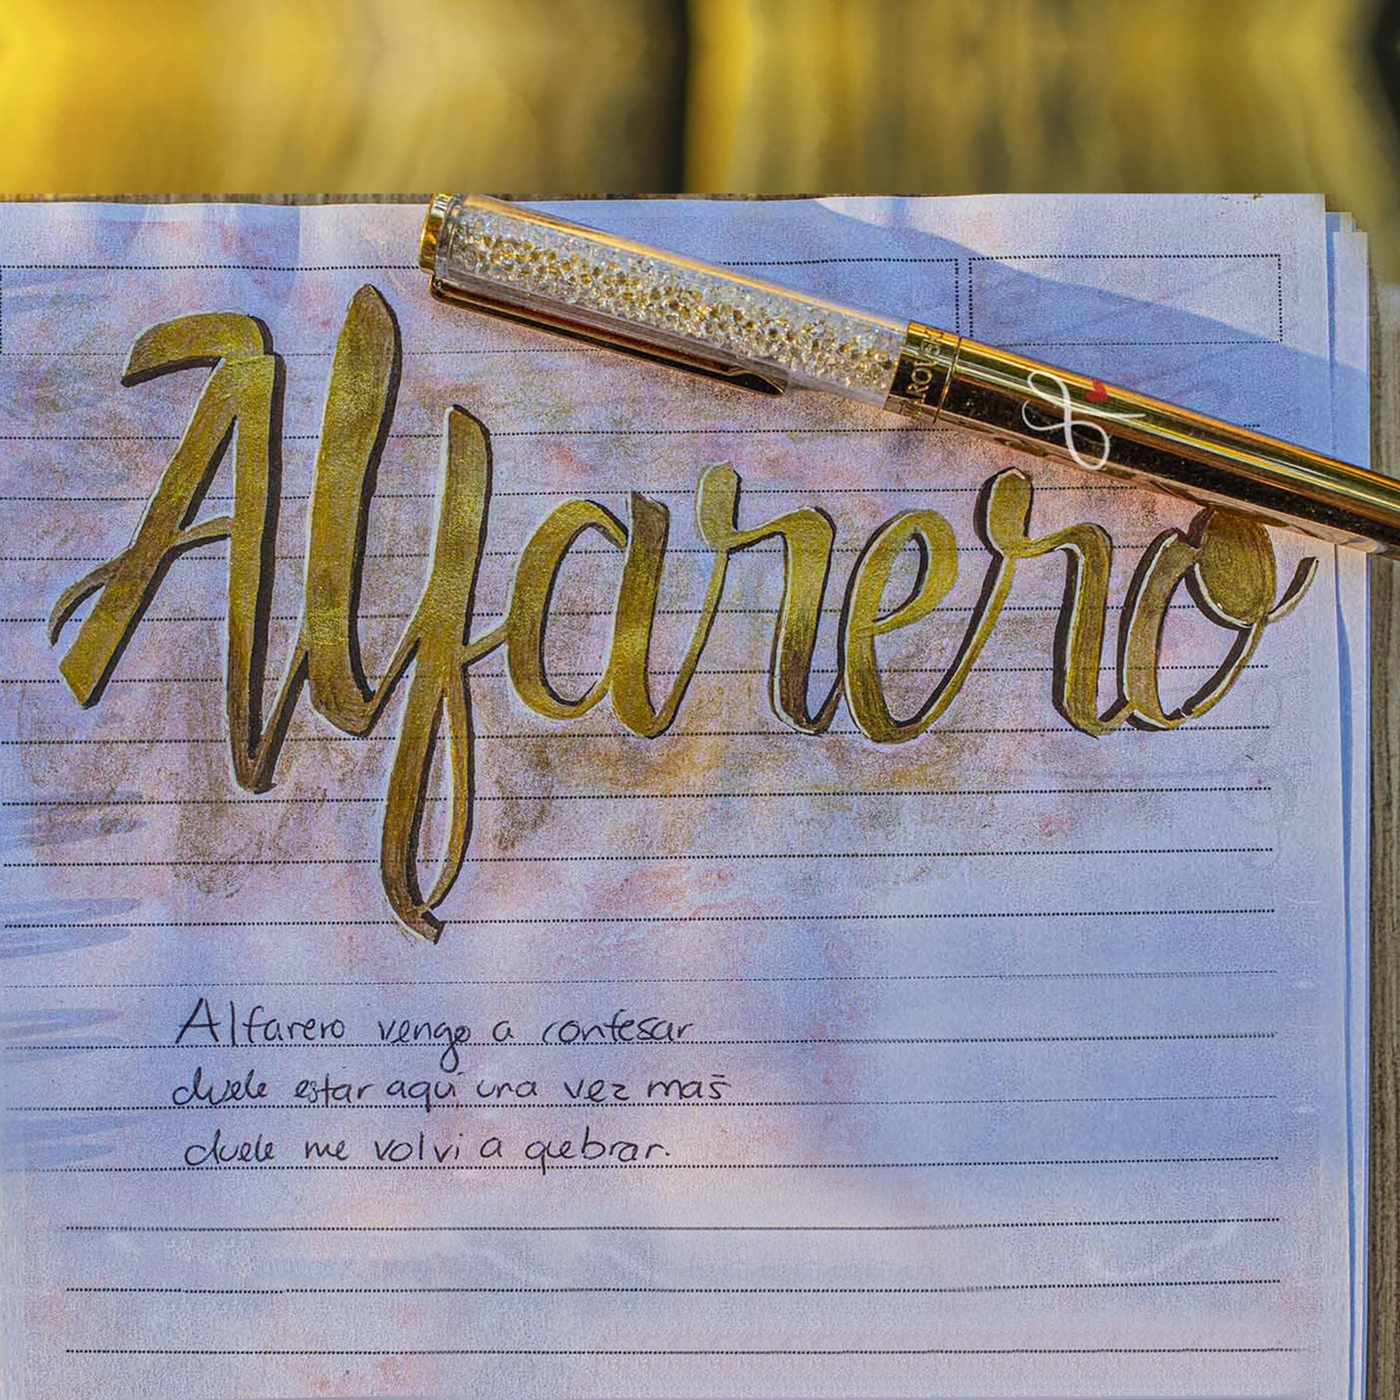 Alfarero
Alfarero vengo a confesar
duele estar aquí una vez más
duele me volví a quebrar.